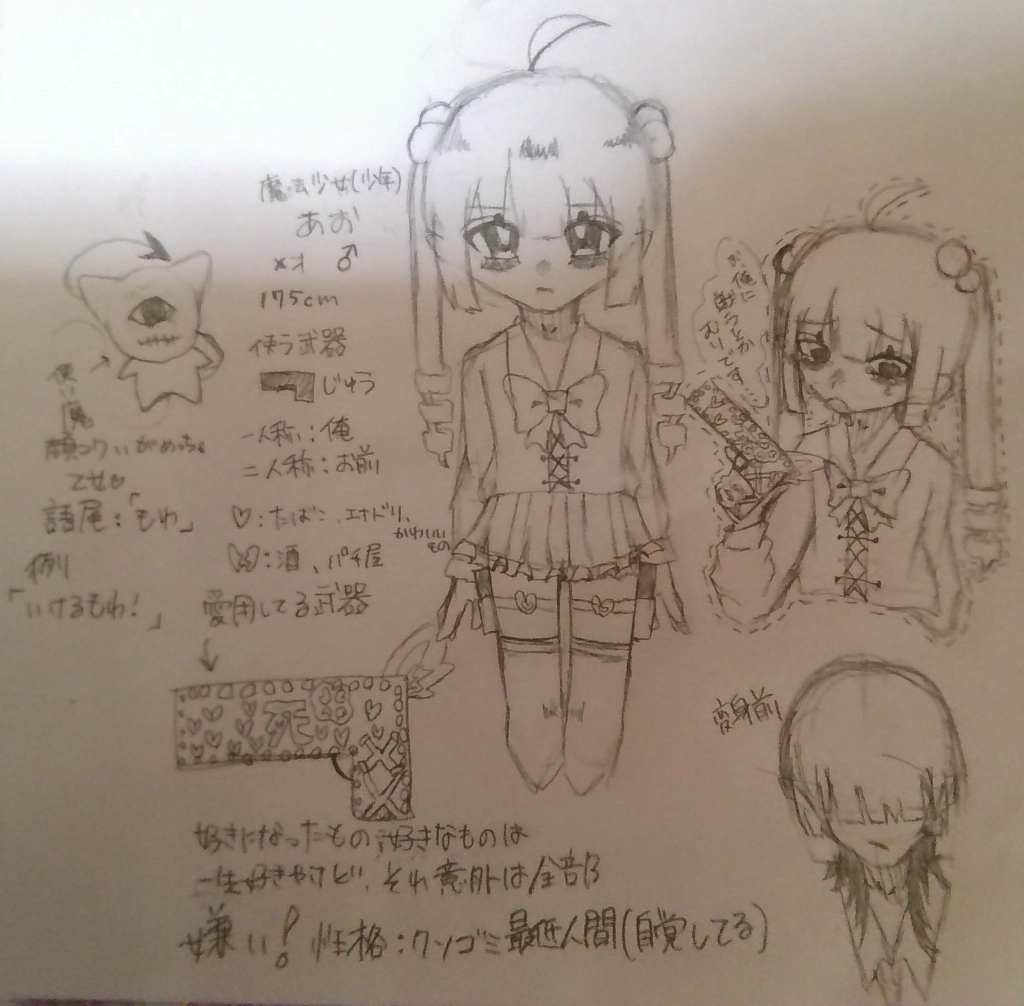 魔法少女(少年)
あお
♂
175cm
使う武器
じゅう
一人称:俺
二人称:お前
♡:たばこ、エナドリ、
かわいい
もの
:酒、パチ屋
愛用してる武器
↓
死
使い魔
顔コワいがめっちゃ
乙女♡
語尾:「もわ」
例
「いけるもわ!」
俺に
戦うとか
むりです…
変身前
好きになったもの、好きなものは
一生好きやけど、それ意外は全部
嫌い!性格:クソゴミ最低人間(自覚してる)